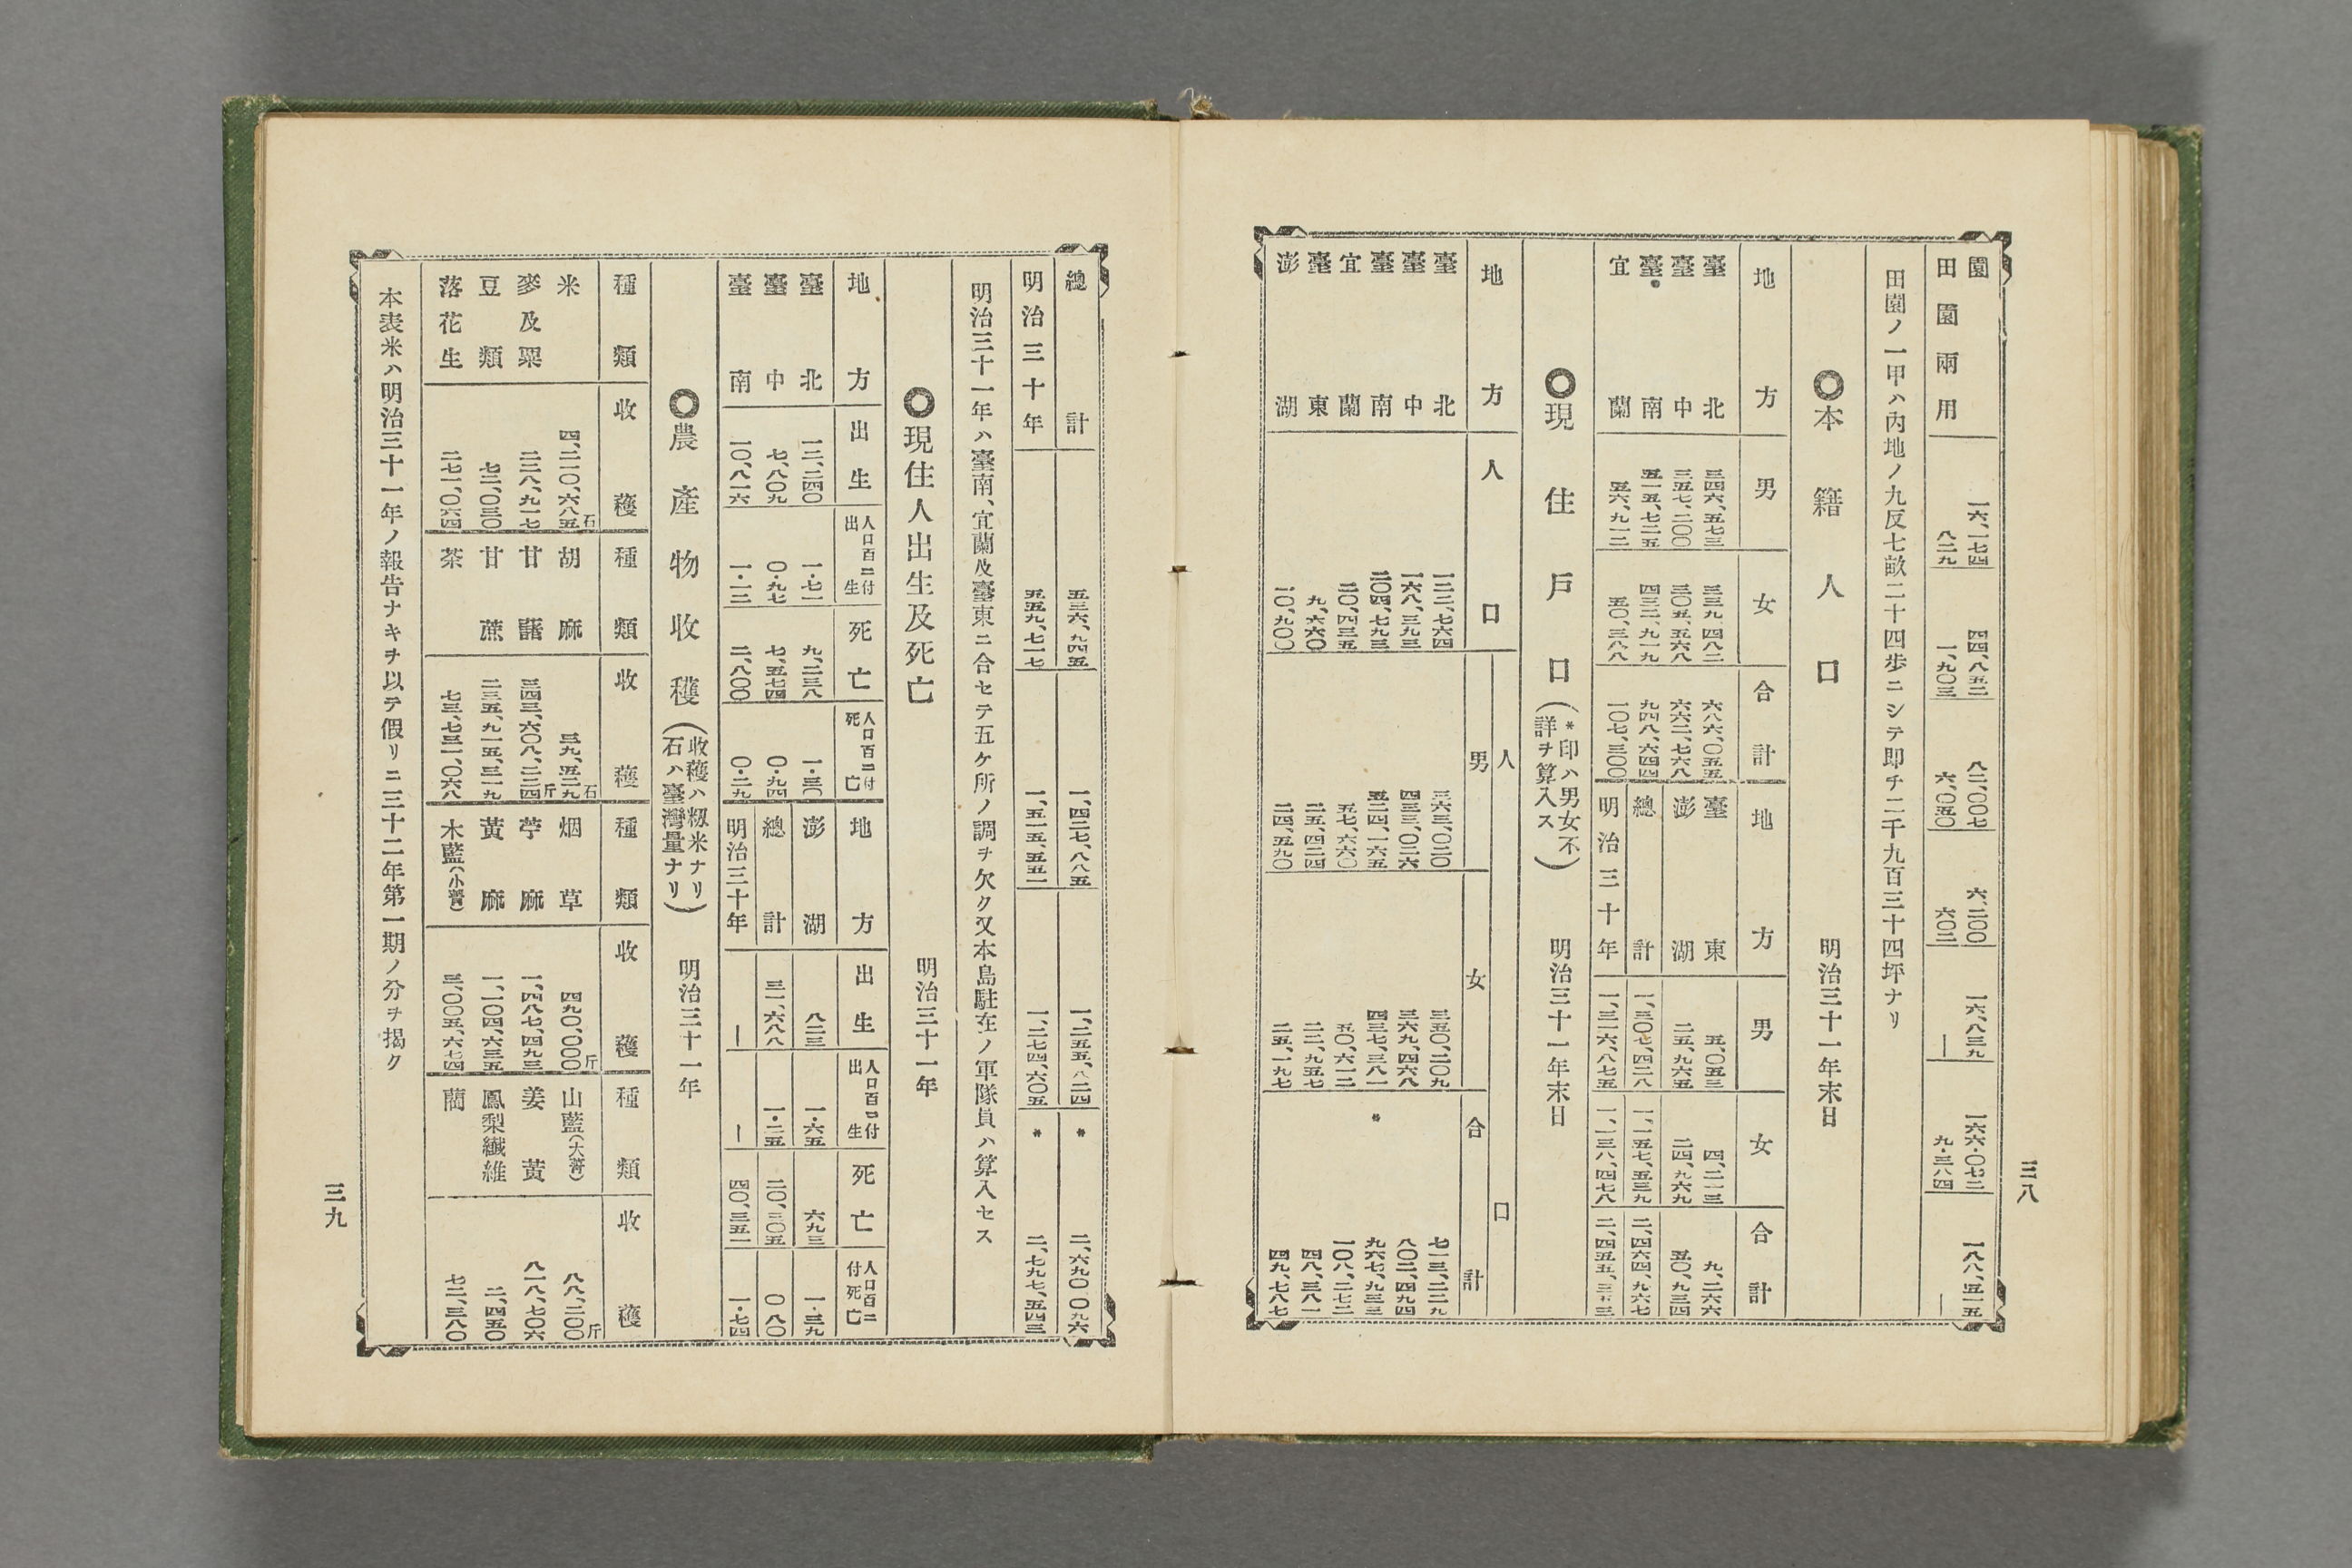 三八
園 一六、一七四 四四、八五二 八二、〇〇七 六、二〇〇 一六、八三九 一六六・〇七二 一八八、五一五
田園兩用 八二九 一、九〇三 六、〇五〇 六〇二 ― 九・三八四 ―
田園ノ一甲ハ內地ノ九反七畝二十四步ニシテ卽チ二千九百三十四坪ナリ
◎本籍人口 明治三十一年末日
地方 男 女 合計 地方 男 女 合計
臺北 三四六、五七三 三三九、四八二 六八六、〇五五 臺東 五、〇五三 四、二一三 九、二六六
臺中 三五七、二〇〇 三〇五、五六八 六六二、七六八 澎湖 二五、九六五 二四、九六九 五〇、九三四
臺南 五一五、七二五 四三二、九一九 九四八、六四四 總計 一、三〇七、四二八 一、一五七、五三九 二、四六四、九六七
宜蘭 五六、九一二 五〇、三八八 一〇七、三〇〇 明治三十年 一、三一六、八七五 一、一三八、四七八 二、四五五、三五三
◎現住戶口(*印ハ男女不詳ヲ算入ス) 明治三十一年末日
地方 人口 人口
男 女 合計
臺北 一二二、七六四 三六三、〇二〇 三五〇、二〇九 七一三、二二九
臺中 一六八、三九三 四三三、〇二六 三六九、四六八 八〇二、四九四
臺南 二〇四、七九三 五二四、一六五 四三七、三八一 * 九六七、九三三
宜蘭 二〇、四三五 五七、六六〇 五〇、六一二 一〇八、二七二
臺東 九、六六〇 二五、四二四 二二、九五七 四八、三八一
澎湖 一〇、九〇〇 二四、五九〇 二五、一九七 四九、七八七
總計 五三六、九四五 一、四二七、八八五 一、二五五、八二四 * 二、六九〇、〇九六
明治三十年 五五九、七一七 一、五一五、五五二 一、二七四、六〇五 * 二、七九七、五四三
明治三十一年ハ臺南、宜蘭及臺東ニ合セテ五ケ所ノ調ヲ欠ク又本島駐在ノ軍隊員ハ算入セス
◎現住人出生及死亡 明治三十一年
地方 出生 人口百ニ付出生 死亡 人口百ニ付死亡 地方 出生 人口百ニ付出生 死亡 人口百ニ付死亡
臺北 一二、二四〇 一・七一 九、二三八 一・三〇 澎湖 八二三 一・六五 六九三 一・三九
臺中 七、八〇九 〇・九七 七、五七四 〇・九四 總計 三一、六八八 一・二五 二〇、三〇五 〇 八〇
臺南 一〇、八一六 一・一二 二、八〇〇 〇・二九 明治三十年 ― ― 四〇、三五一 一・七四
◎農產物收穫(收穫ハ籾米ナリ石ハ臺灣量ナリ) 明治三十一年
種類 收穫 種類 收穫 種類 收穫 種類 收穫
米 四、二一〇、六八五石 胡麻 三九、五二九石 烟草 四九〇、〇〇〇斤 山藍(大菁) 八八、二〇〇斤
麥及粟 二二八、九一七 甘藷 三四三、六〇八、二二四斤 苧麻 一、四八七、四九三 姜黃 八一八、七〇六
豆類 七二、〇三〇 甘蔗 二三五、九一五、三一九 黃麻 一、一〇四、六三五 鳳梨纖維 二、四五〇
落花生 二七一、〇六四 茶 七三、七三一、〇六八 木藍(小菁) 三、〇〇五、六七四 藺 七二、三八〇
本表米ハ明治三十一年ノ報告ナキヲ以テ假リニ三十二年第一期ノ分ヲ揭ク
三九